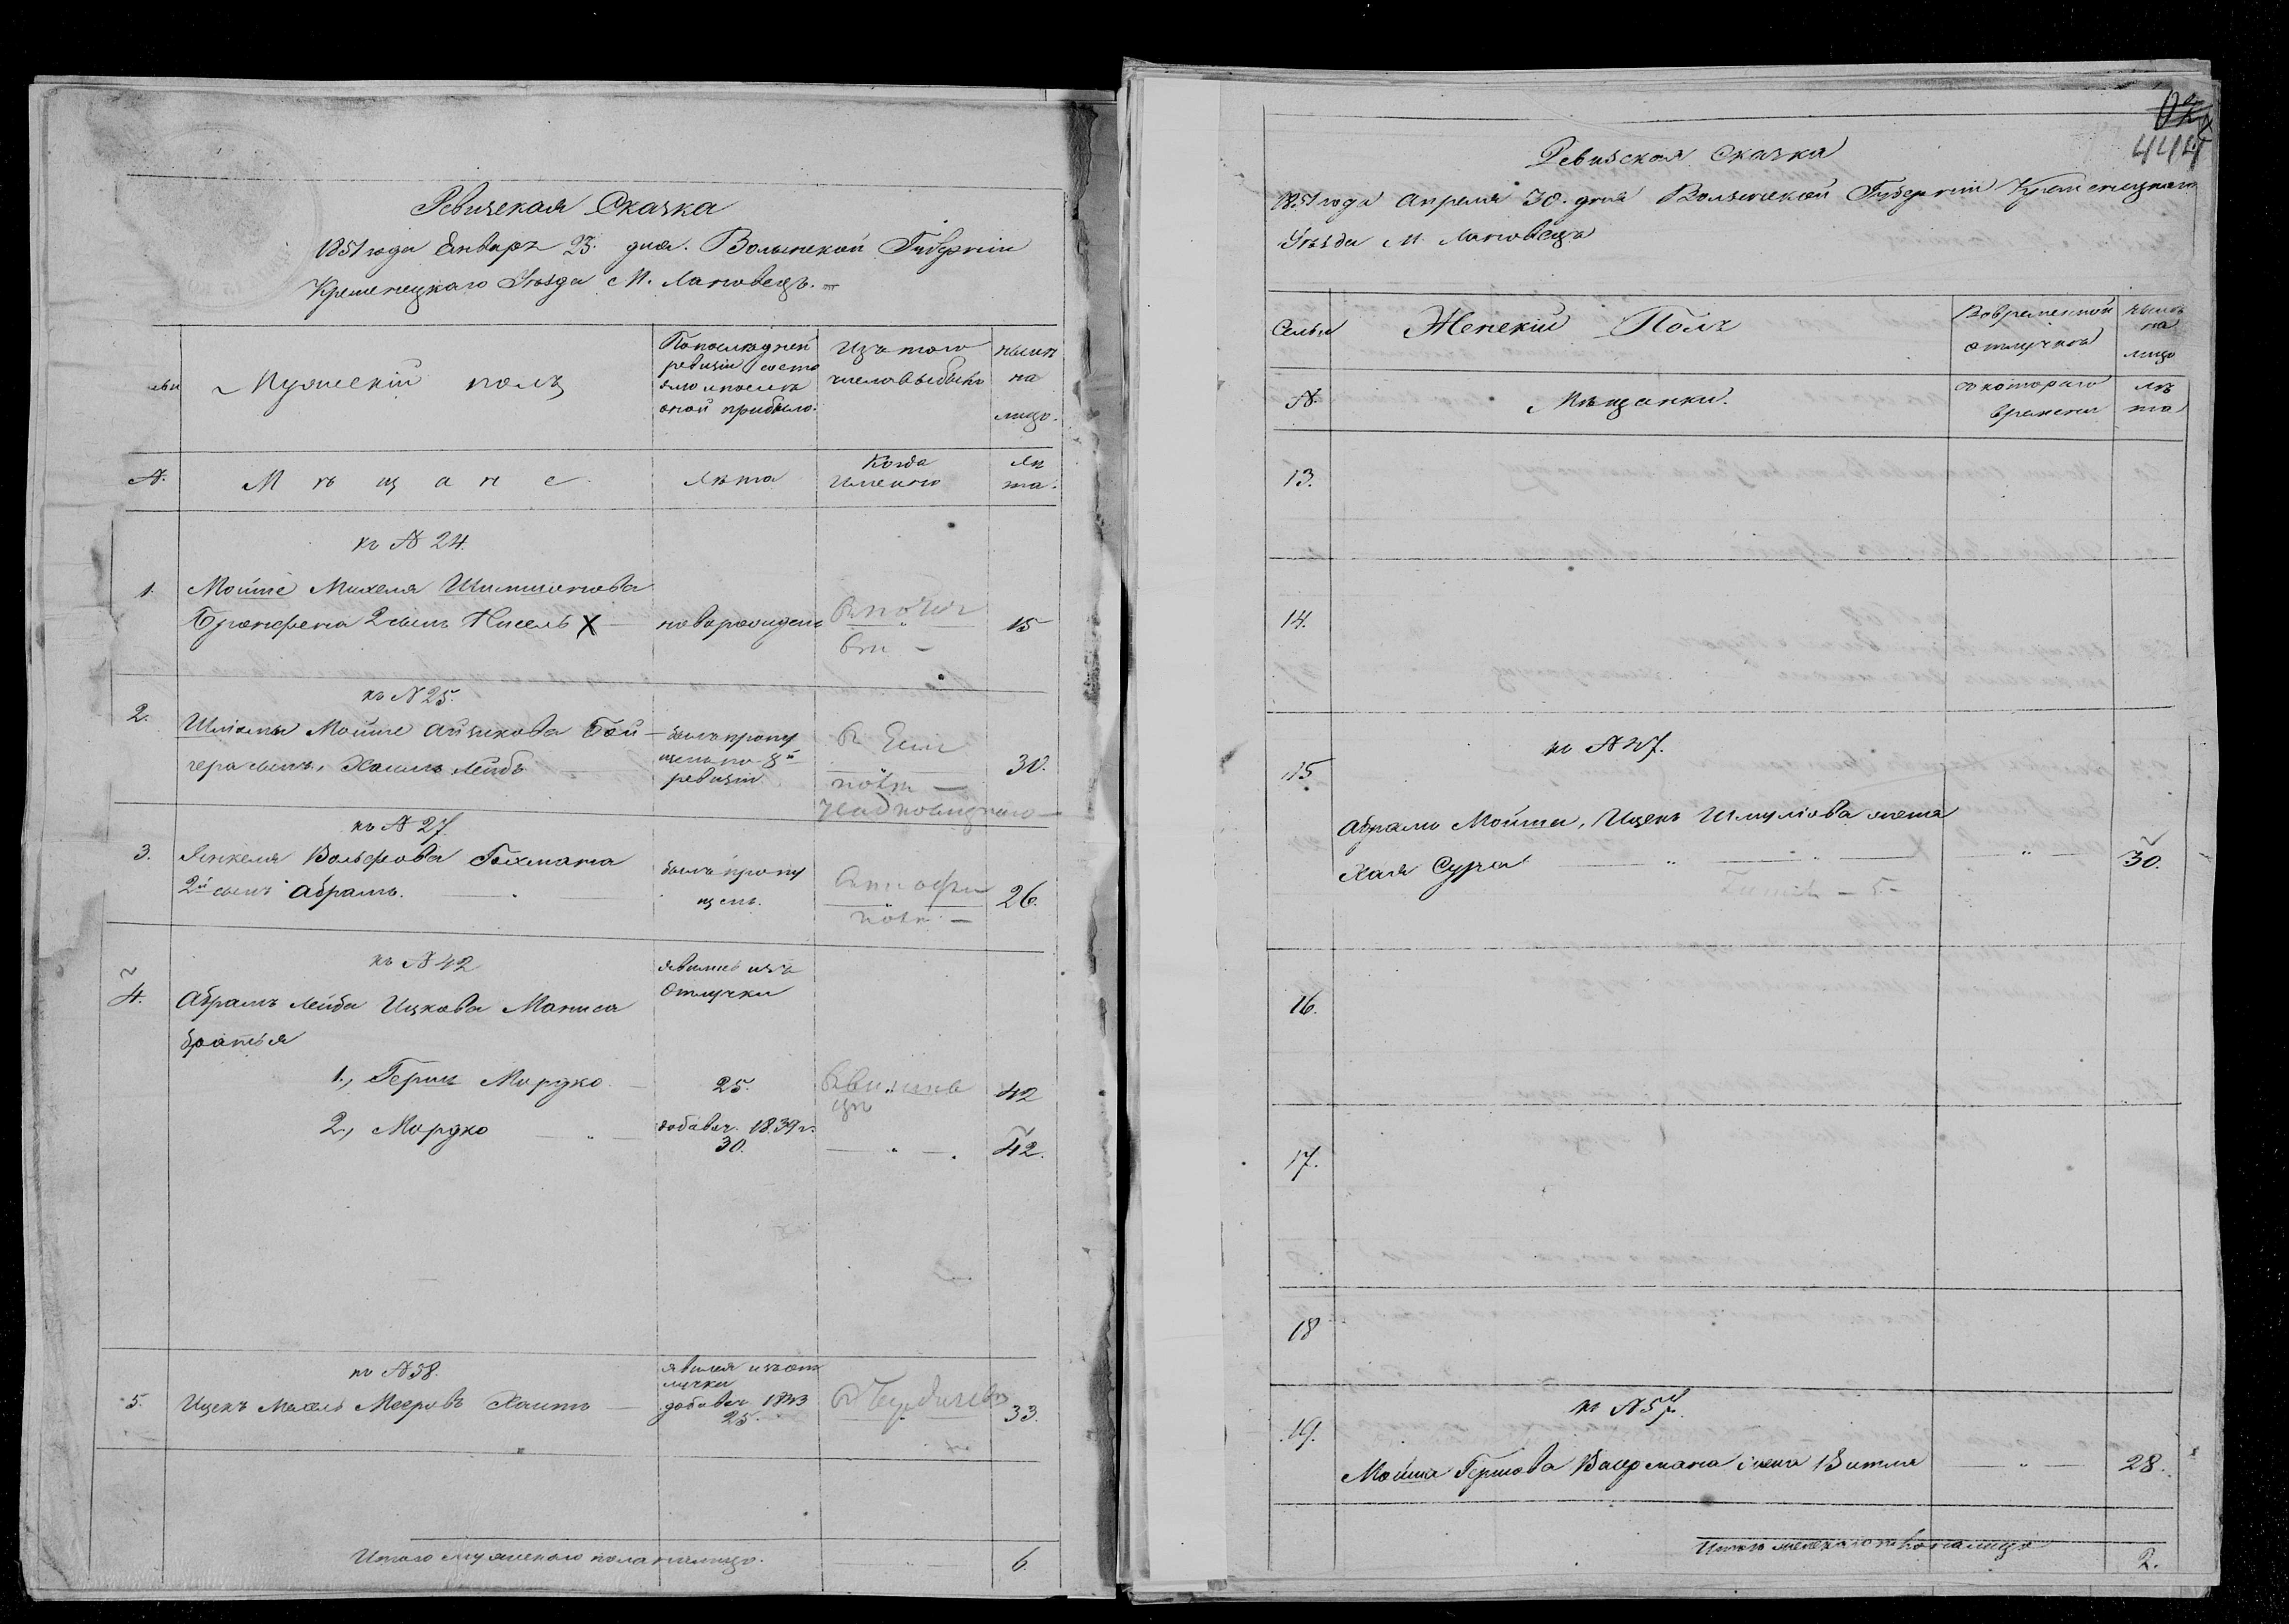 Ревизская Сказка
1851 года Января 23. дня. Волынской Губернiи
Кременецкаго Уѣзда М. Лановецъ.
Мужескiй полъ
По последней
ревизiи состо
яло и после
оной прибыло.
Изъ того
числа выбыло
нынѣ
на
лицо.
№.
Мѣщане
Лѣта
Когда
именно
Лѣ
та.
къ № 24.
1. Мойше Михеля Шимшонова
2 сынъ Нисель X новорожденъ 15
къ № 25.
2. Шліомы Мойше Айзикова Бой
чера сынъ, Хаимъ Лейбъ
былъ пропу
щенъ по 8й
ревизiи.
30.
къ № 27.
3. Янкеля Вольфова Гохмана
2й сынъ Абрамъ.
былъ пропу
щенъ.
26.
къ № 42
явились изъ
отлучки
4. Абрамъ Лейба Ицкова Маниса
братья
1., Герш Мордко 25. 42
2., Мордко
добавоч. 1839 г.
30. 42.
къ № 38.
явился изъ от
лучки
5. Ицекъ Михель Мееровъ Хаитъ
добавоч 1843
25. 33.
Итого мужескаго пола на лицо. 6.
444
Ревизская Сказка
1851 года Апреля 30. дня Волынской Губернiи Кременецкаго
Уѣзда М. Лановецъ
Семьи Женскiй Полъ
Во временной
отлучкѣ
нынѣ
на
лицо
№. Мѣщанки.
съ котораго
времени
лѣ
та
13.
14.
къ № 47.
15
Абрамъ Мойши, Ицекъ Шмуліова жена
Хая Сура 30.
16.
17.
18
къ № 57.
19.
Мойша Гершова Ваермана жена Витля 28.
Итого женскаго пола на лицо 2.